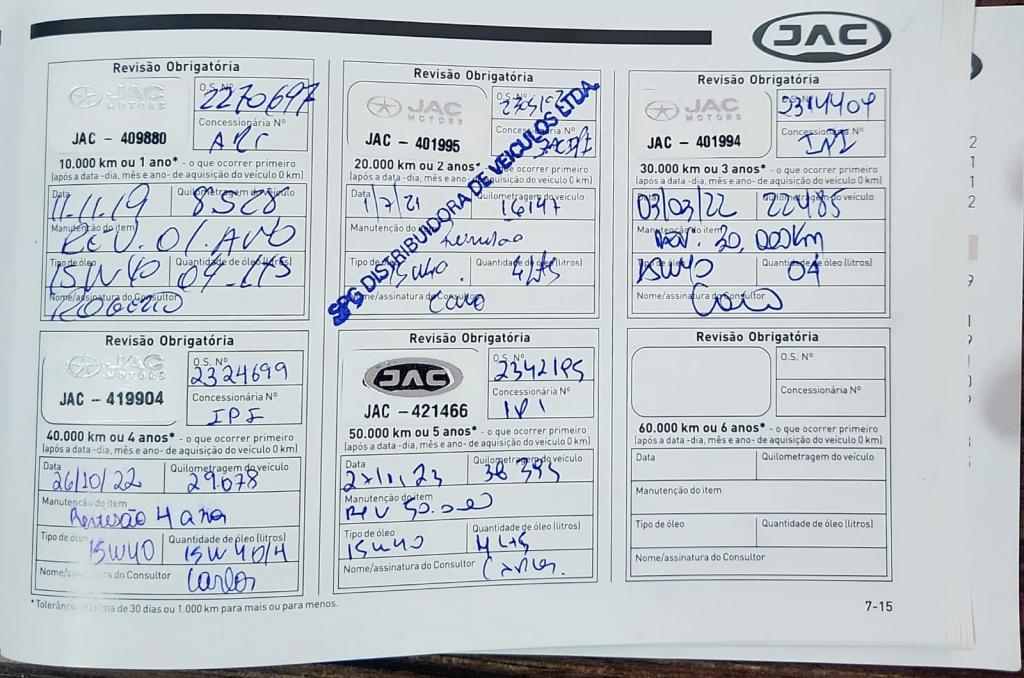 JAC
Revisão Obrigatória
JAC MOTORS
JAC - 409880
O.S. Nº
2270697
Concessionária Nº
10.000 km ou 1 ano* - o que ocorrer primeiro
(após a data -dia, mês e ano- de aquisição do veículo 0 km)
Data
11.11.19
Quilometragem do veículo
8528
Manutenção do item
REV. 01. ANO
Tipo de óleo
15W40
Quantidade de óleo (litros)
04 LTS
Nome/assinatura do Consultor
ROGERIO
Revisão Obrigatória
JAC MOTORS
JAC - 401995
O.S. Nº
Concessionária Nº
SPG DISTRIBUIDORA DE VEICULOS LTDA.
20.000 km ou 2 anos* - o que ocorrer primeiro
(após a data -dia, mês e ano- de aquisição do veículo 0 km)
Data
1/7/21
Quilometragem do veículo
16147
Manutenção do item
Revisão
Tipo de óleo
15W40.
Quantidade de óleo (litros)
4LTS
Nome/assinatura do Consultor
Revisão Obrigatória
JAC MOTORS
JAC - 401994
O.S. Nº
2314404
Concessionária Nº
IPI
30.000 km ou 3 anos* - o que ocorrer primeiro
(após a data -dia, mês e ano- de aquisição do veículo 0 km)
Data
03/03/22
Quilometragem do veículo
22485
Manutenção do item
Rev. 30.000Km
Tipo de óleo
15W40
Quantidade de óleo (litros)
04
Nome/assinatura do Consultor
Revisão Obrigatória
JAC MOTORS
JAC - 419904
O.S. Nº
2324699
Concessionária Nº
IPI
40.000 km ou 4 anos* - o que ocorrer primeiro
(após a data -dia, mês e ano- de aquisição do veículo 0 km)
Data
26/10/22
Quilometragem do veículo
29.078
Manutenção do item
Revisão 4 ano
Tipo de óleo
15W40
Quantidade de óleo (litros)
15W40/4
Nome/assinatura do Consultor
Carlos
Revisão Obrigatória
JAC
JAC - 421466
O.S. Nº
2342195
Concessionária Nº
IPI
50.000 km ou 5 anos* - o que ocorrer primeiro
(após a data -dia, mês e ano- de aquisição do veículo 0 km)
Data
Quilometragem do veículo
38395
Manutenção do item
REV 50.000
Tipo de óleo
15W40
Quantidade de óleo (litros)
4 LTS
Nome/assinatura do Consultor
Carlos.
Revisão Obrigatória
O.S. Nº
Concessionária Nº
60.000 km ou 6 anos* - o que ocorrer primeiro
(após a data -dia, mês e ano- de aquisição do veículo 0 km)
Data
Quilometragem do veículo
Manutenção do item
Tipo de óleo
Quantidade de óleo (litros)
Nome/assinatura do Consultor
*Tolerância máxima de 30 dias ou 1.000 km para mais ou para menos.
7-15